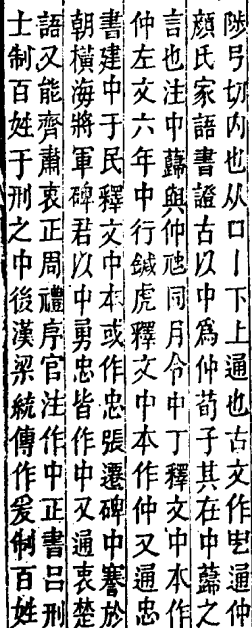 陟弓切内也从口丨下上通也古文作𠁧通仲
顔氏家語書證古以中爲仲荀子其在中蘬之
言也注中蘬與仲虺同月令中丁釋文中本作
仲左文六年中行鍼虎釋文中本作仲又通忠
書建中于民釋文中本或作忠張遷碑中謇於
朝橫海將軍碑君以中勇忠皆作中又通衷楚
語又能齊肅衷正周禮序官注作中正書呂刑
士制百姓于刑之中後漢梁統傳作爰制百姓